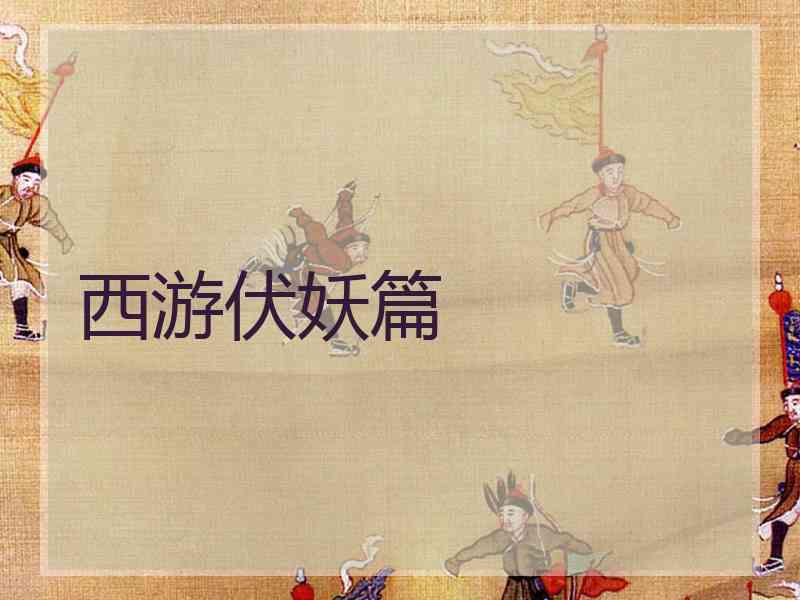 西游伏妖篇